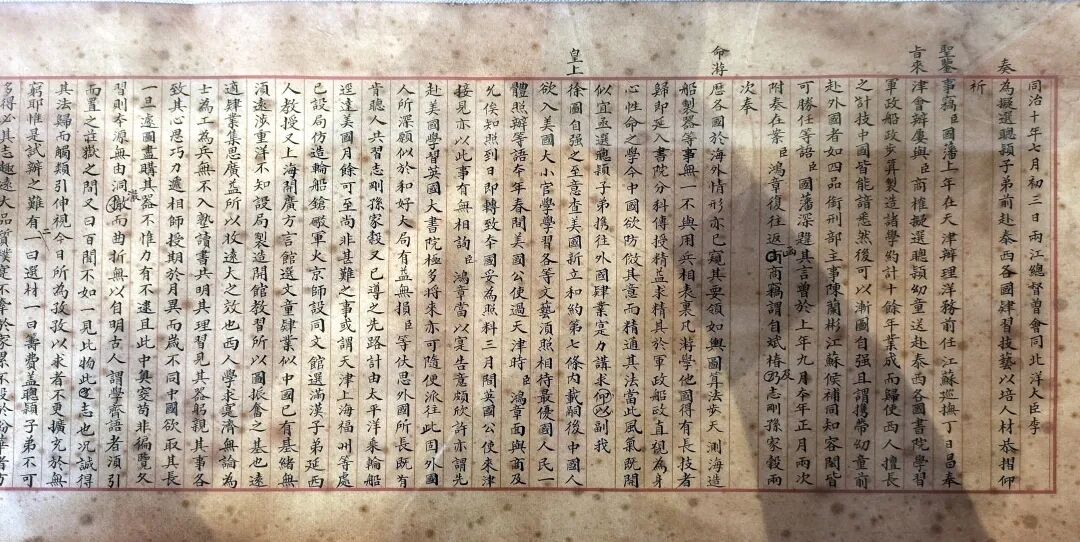 同治十年七月初三日兩江總督曾會同北洋大臣李
奏為擬選聰穎子弟前赴泰西各國肄習技藝以培人材恭摺仰
祈
聖鑒事竊臣國藩上年在天津辦理洋務前任江蘇巡撫丁日昌奉
旨來津會辦屢與臣商榷擬選聰穎幼童送赴泰西各國書院學習
軍政船政步算製造諸學約計十餘年業成而歸使西人擅長
之技中國皆能諳悉然後可以漸圖自强且謂攜帶幼童前
赴外國者如四品銜刑部主事陳蘭彬江蘇候補同知容閎皆
可勝任等語臣國藩深韙其言曾於上年九月今年正月兩次
附奏在案臣鴻章復往返函商竊謂自斌椿及志剛孫家穀兩
次奉
命游歷各國於海外情形亦已窺其要領如輿圖算法步天測海造
船製器等事無一不與用兵相表裏凡游學他國得有長技者
歸即延入書院分科傳授精益求精其於軍政船政直視為身
心性命之學今中國欲仿傚其意而精通其法當此風氣既開
似宜亟選聰穎子弟携往外國肄業實力講求仰以副我
皇上徐圖自强之至意查美國新立和約第七條內載嗣後中國人
欲入美國大小官學學習各等文藝須照相待最優國人民一
體照辦等語本年春間美國公使過天津時臣鴻章面與商及
允俟知照到日即轉致本國妥為照料三月間英國公使來津
接見亦以此事有無相詢臣鴻章當以實告意頗欣許亦謂先
赴美國學習英國大書院極多將來亦可隨便派往此固外國
人所深願似於和好大局有益無損臣等伏思外國所長既有
肯聽人共習志剛孫家穀又已導之先路計由太平洋乘輪船
逕達美國月餘可至尚非甚難之事或謂天津上海福州等處
已設局仿造輪船鎗礮軍火京師設同文館選滿漢子弟延西
人教授又上海開廣方言館選文童肄業似中國已有基緒無
須遠涉重洋不知設局製造開館教習所以圖振奮之基也遠
適肄業集思廣益所以收遠大之效也西人學求實濟無論為
士為工為兵無不入塾讀書共明其理習見其器躬親其事各
致其心思巧力遞相師授期於月異而歲不同中國欲取其長
一旦遽圖盡購其器不惟力有不逮且此中奧窔苟非徧覽久
習則本源無由洞澈而曲折無以自明古人謂學齊語者須引
而置之莊嶽之間又曰百聞不如一見此物此志也況誠得
其法歸而觸類引伸視今日所為孜孜以求者不更擴充於無
窮耶惟是試辦之難有二一曰選材一曰籌費蓋聰穎子弟不可
多得必其志趣遠大品質樸實不牽於家累不役於紛華者方